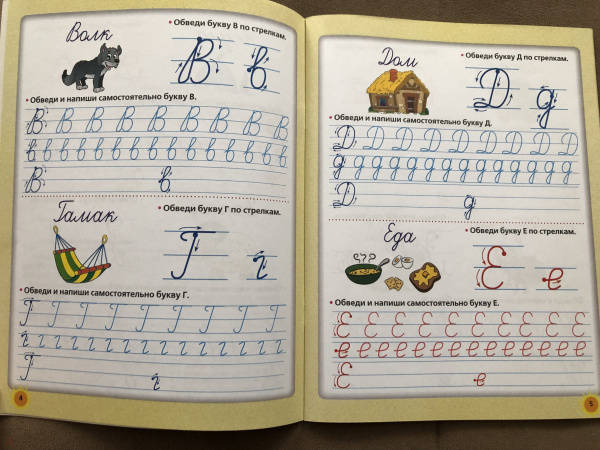 Волк
• Обведи букву В по стрелкам.
В в
• Обведи и напиши самостоятельно букву В.
В В В В В В В В В
в в в в в в в в в в в в в в в в
В в
Гамак
• Обведи букву Г по стрелкам.
Г г
• Обведи и напиши самостоятельно букву Г.
Г Г Г Г Г Г Г Г Г
г г г г г г г г г г г г г г г г
Г г
4
Дом
• Обведи букву Д по стрелкам.
Д д
• Обведи и напиши самостоятельно букву Д.
Д Д Д Д Д Д Д Д Д
д д д д д д д д д д д д д д д
Д д
Еда
• Обведи букву Е по стрелкам.
Е е
• Обведи и напиши самостоятельно букву Е.
Е Е Е Е Е Е Е Е Е Е
е е е е е е е е е е е е е е е
Е е
5